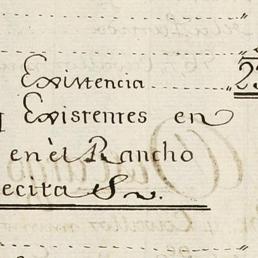 Existencia
Existentes en
en èl Rancho
ecita &v.